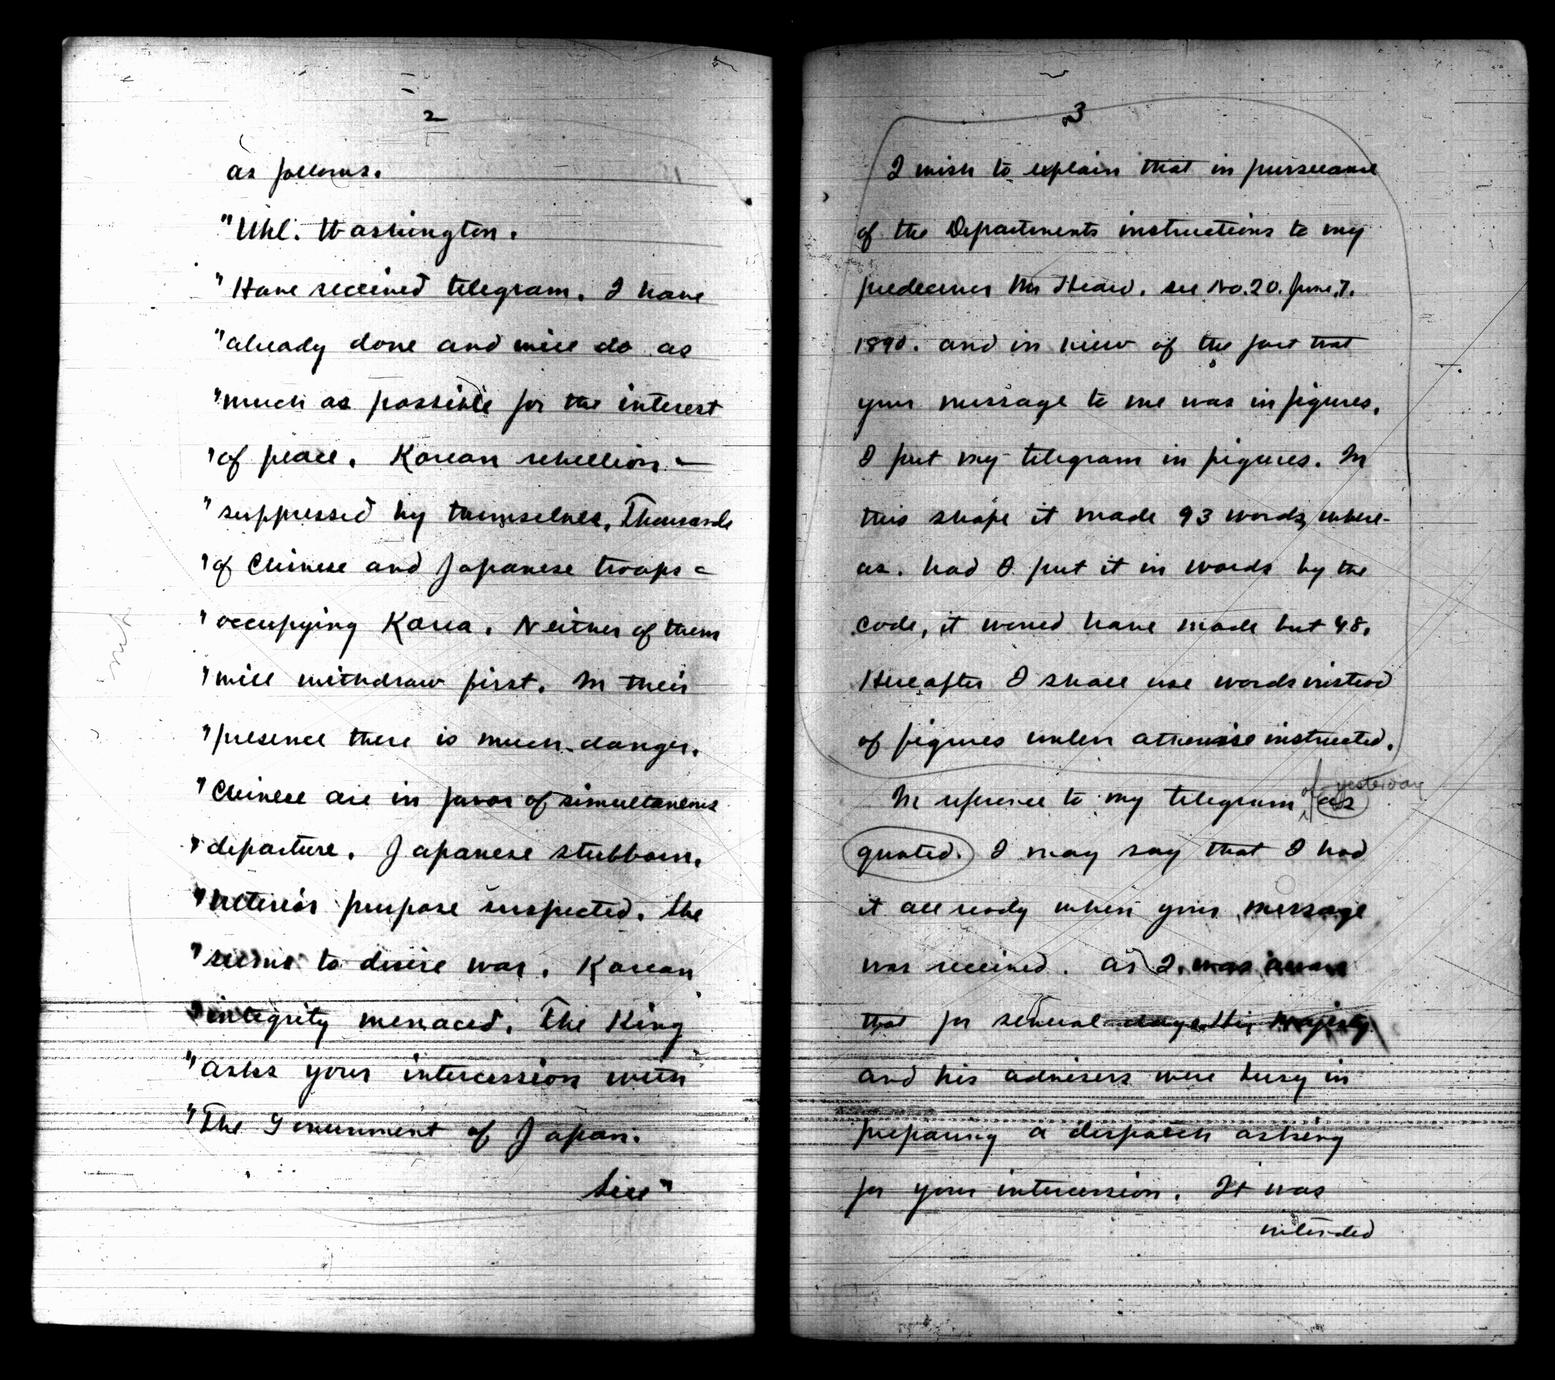 2
as follows.
"Uhl. Washington.
"Have received telegram. I have
"already done and will do as
"much as possible for the interest
"of peace. Korean rebellion -
"suppressed by themselves. Thousands
"of Chinese and Japanese troops -
"occupying Korea. Neither of them
"will withdraw first. In their
"presence there is much danger.
"Chinese are in favor of simultaneous
"departure. Japanese stubborn.
"purpose suspected. She
"seems to desire war. Korean
"integrity menaced. The King
"asks your intercession with
"The Government of Japan.
Sill"
3
I wish to explain that in pursuance
of the Departments instructions to my
predecessor Mr Heard. see No. 20. June, 7.
1890. and in view of the fact that
your message to me was in figures,
I put my telegram in figures. In
this shape it made 93 words, where-
as. had I put it in words by the
code, it would have made but 48.
Hereafter I shall use words instead
of figures unless otherwise instructed.
In reference to my telegram of yesterday as
quoted. I may say that I had
it all ready when your message
was received. As I was aware
that for several days His Majesty
and his advisers were busy in
preparing a despatch asking
for your intercession. It was
intended